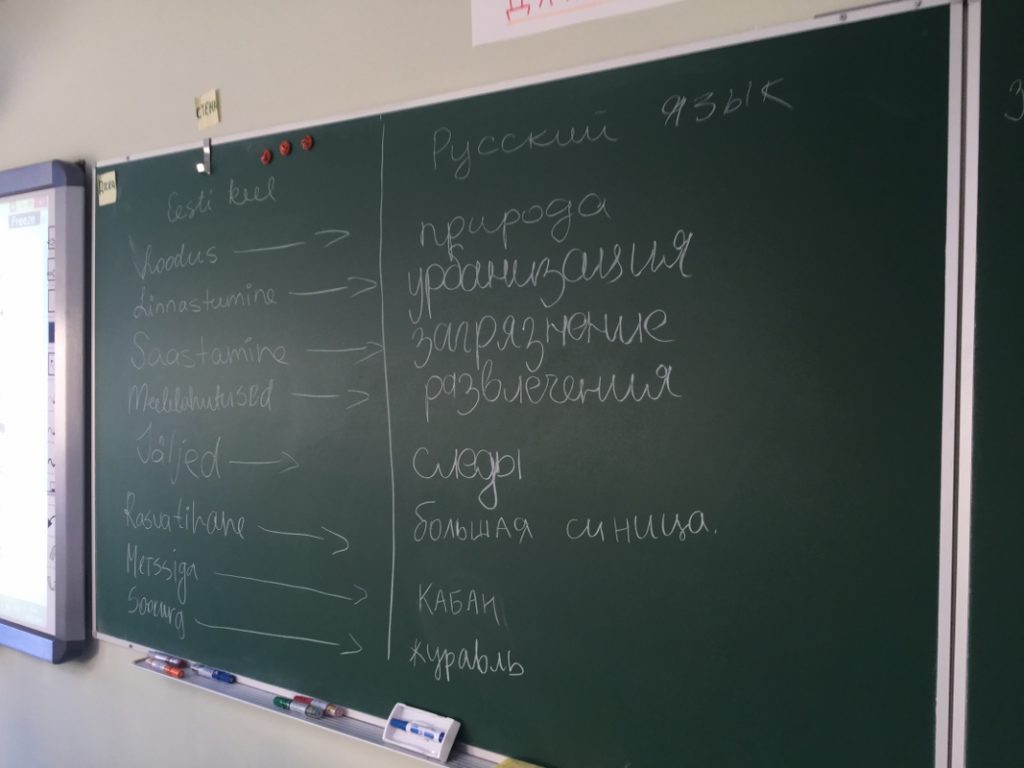 СТЕНА
Доска
Freeze
Eesti keel Русский язык
Loodus → природа
Linnastumine → урбанизация
Saastamine → загрязнение
Meelelahutused → развлечения
Jäljed → следы
Rasvatihane → большая синица.
Metssiga → кабан
Sookurg → журавль